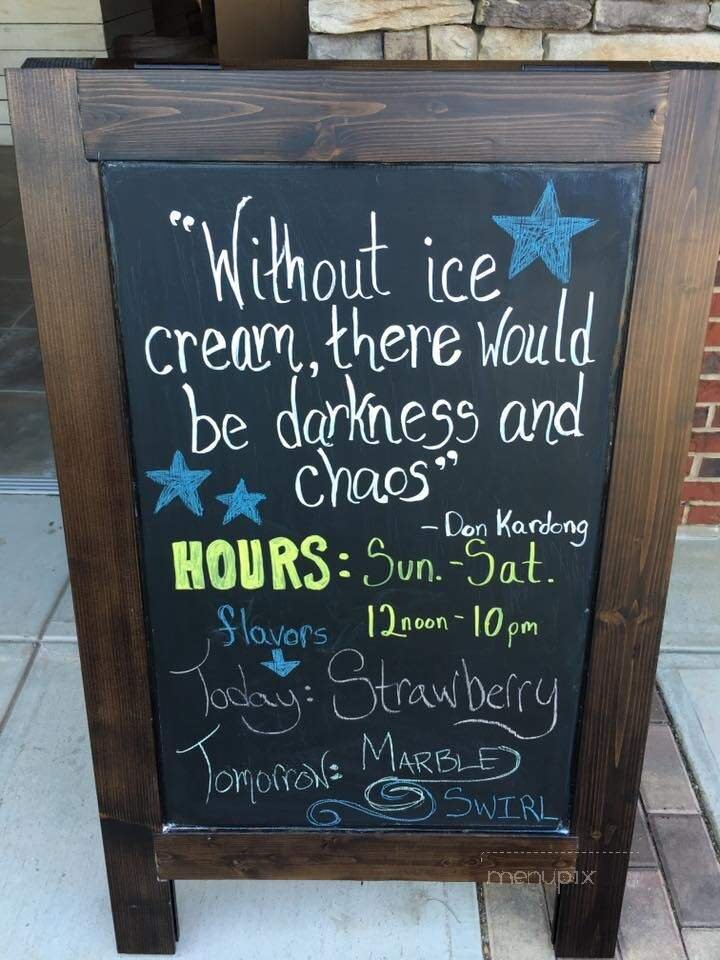 “Without ice
cream, there would
be darkness and
chaos”
- Don Kardong
HOURS: Sun.-Sat.
12noon-10pm
flavors
Today: Strawberry
Tomorrow: MARBLE
SWIRL
menupix